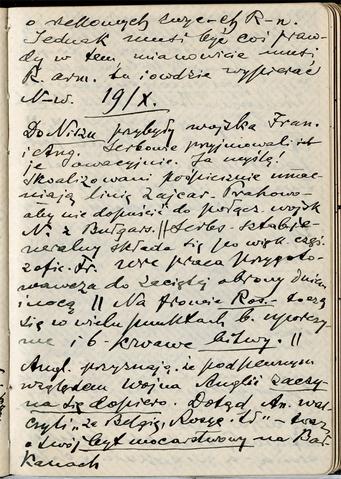 o rzekomych zwyc-ch R-n.
Jednak musi być coś praw-
dy w tem, mianowicie musi
R. arm. tu i owdzie wypierać
N-w. 19/X.
Do Niszu przybyły wojska Fran.
i Ang. Serbowie przyjmowali ich
je owacyjnie. Ja myślę!
Skoalizowani pośpiesznie umac-
niają linię Zajcar - Prahowo -
aby nie dopuścić do połącz. wojsk
N. z Bułgars. || Serbs. sztab je-
neralny składa się po więk. części
z ofic. Fr. wre praca przygoto-
wawcza do zaciętej obrony dniem
i nocą || Na froncie Ros. - toczą
się w wielu punktach b. uporczy-
we i b. krwawe bitwy. ||
Angl. przyznają, że pod pewnym
względem wojna Anglii zaczy-
na się dopiero. Dotąd An. wal-
czyli „za Belgię, Rosyę i S" - teraz
o swój byt mocarstwowy na Bał-
kanach